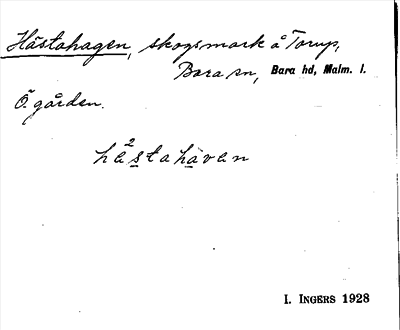 Hästahagen, skogsmark å Torup,
Bara sn, Bara hd, Malm. l.
Ö. gården.
hè²stahàvan
I. INGERS 1928